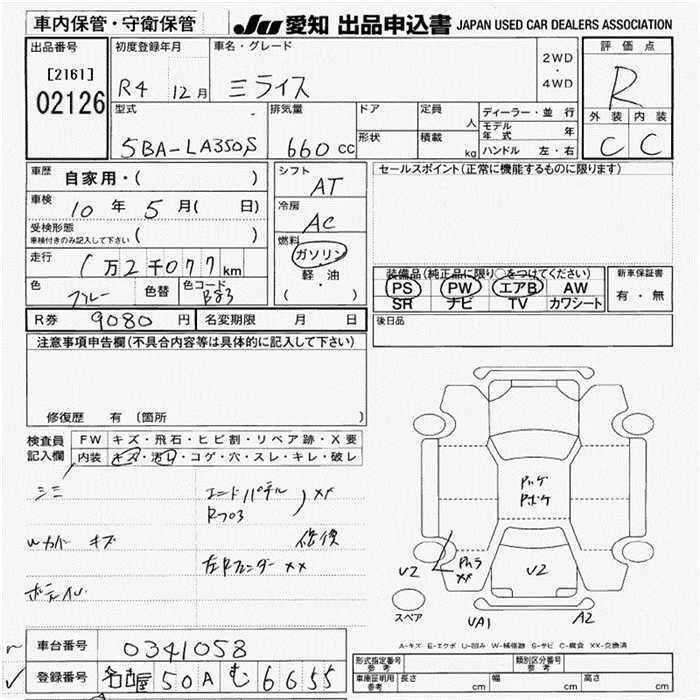 車内保管・守衛保管 JU 愛知 出品申込書 JAPAN USED CAR DEALERS ASSOCIATION
出品番号 初度登録年月 車名・グレード 2WD ・ 4WD 評価点
[2161] R4 12月 ミライス R
02126
型式 排気量 ドア 定員 人 ディーラー・並行 外装 内装
5BA-LA350S 660cc 形状 積載 kg モデル年式 年 C C
ハンドル 左・右
車歴 自家用・( ) シフト AT セールスポイント(正常に機能するものに限ります)
車検 10年5月( 日) 冷房 AC
受検形態 車検付きのみ記入して下さい ( )
走行 1万2千077km 燃料 ガソリン 軽・油 ( )
色 グレー 色替 色コード B83
装備品(純正品に限り○をつけてください) 新車保証書
PS PW エアB AW 有・無
SR ナビ TV カワシート
R券 9080円 名変期限 月 日 後日品
注意事項申告欄(不具合内容等は具体的に記入して下さい)
修復歴 有 (箇所 )
検査員記入欄 FW キズ・飛石・ヒビ割・リペア跡・X要
内装 キズ・汚レ・コゲ・穴・スレ・キレ・破レ
シミ エンドパネル XX
Rフロア 修復
Wカバー キズ
左Rフェンダー XX
V2 XX V2
スペア VA1 A2
A-キズ E-エクボ U-凹み W-補修跡 S-サビ C-腐食 XX-交換済
車台番号 0341058
登録番号 名古屋 50A む 6655
形式指定番号 参考 類別区分番号 参考
車庫証明用 参考 長さ cm 幅 cm 高さ cm